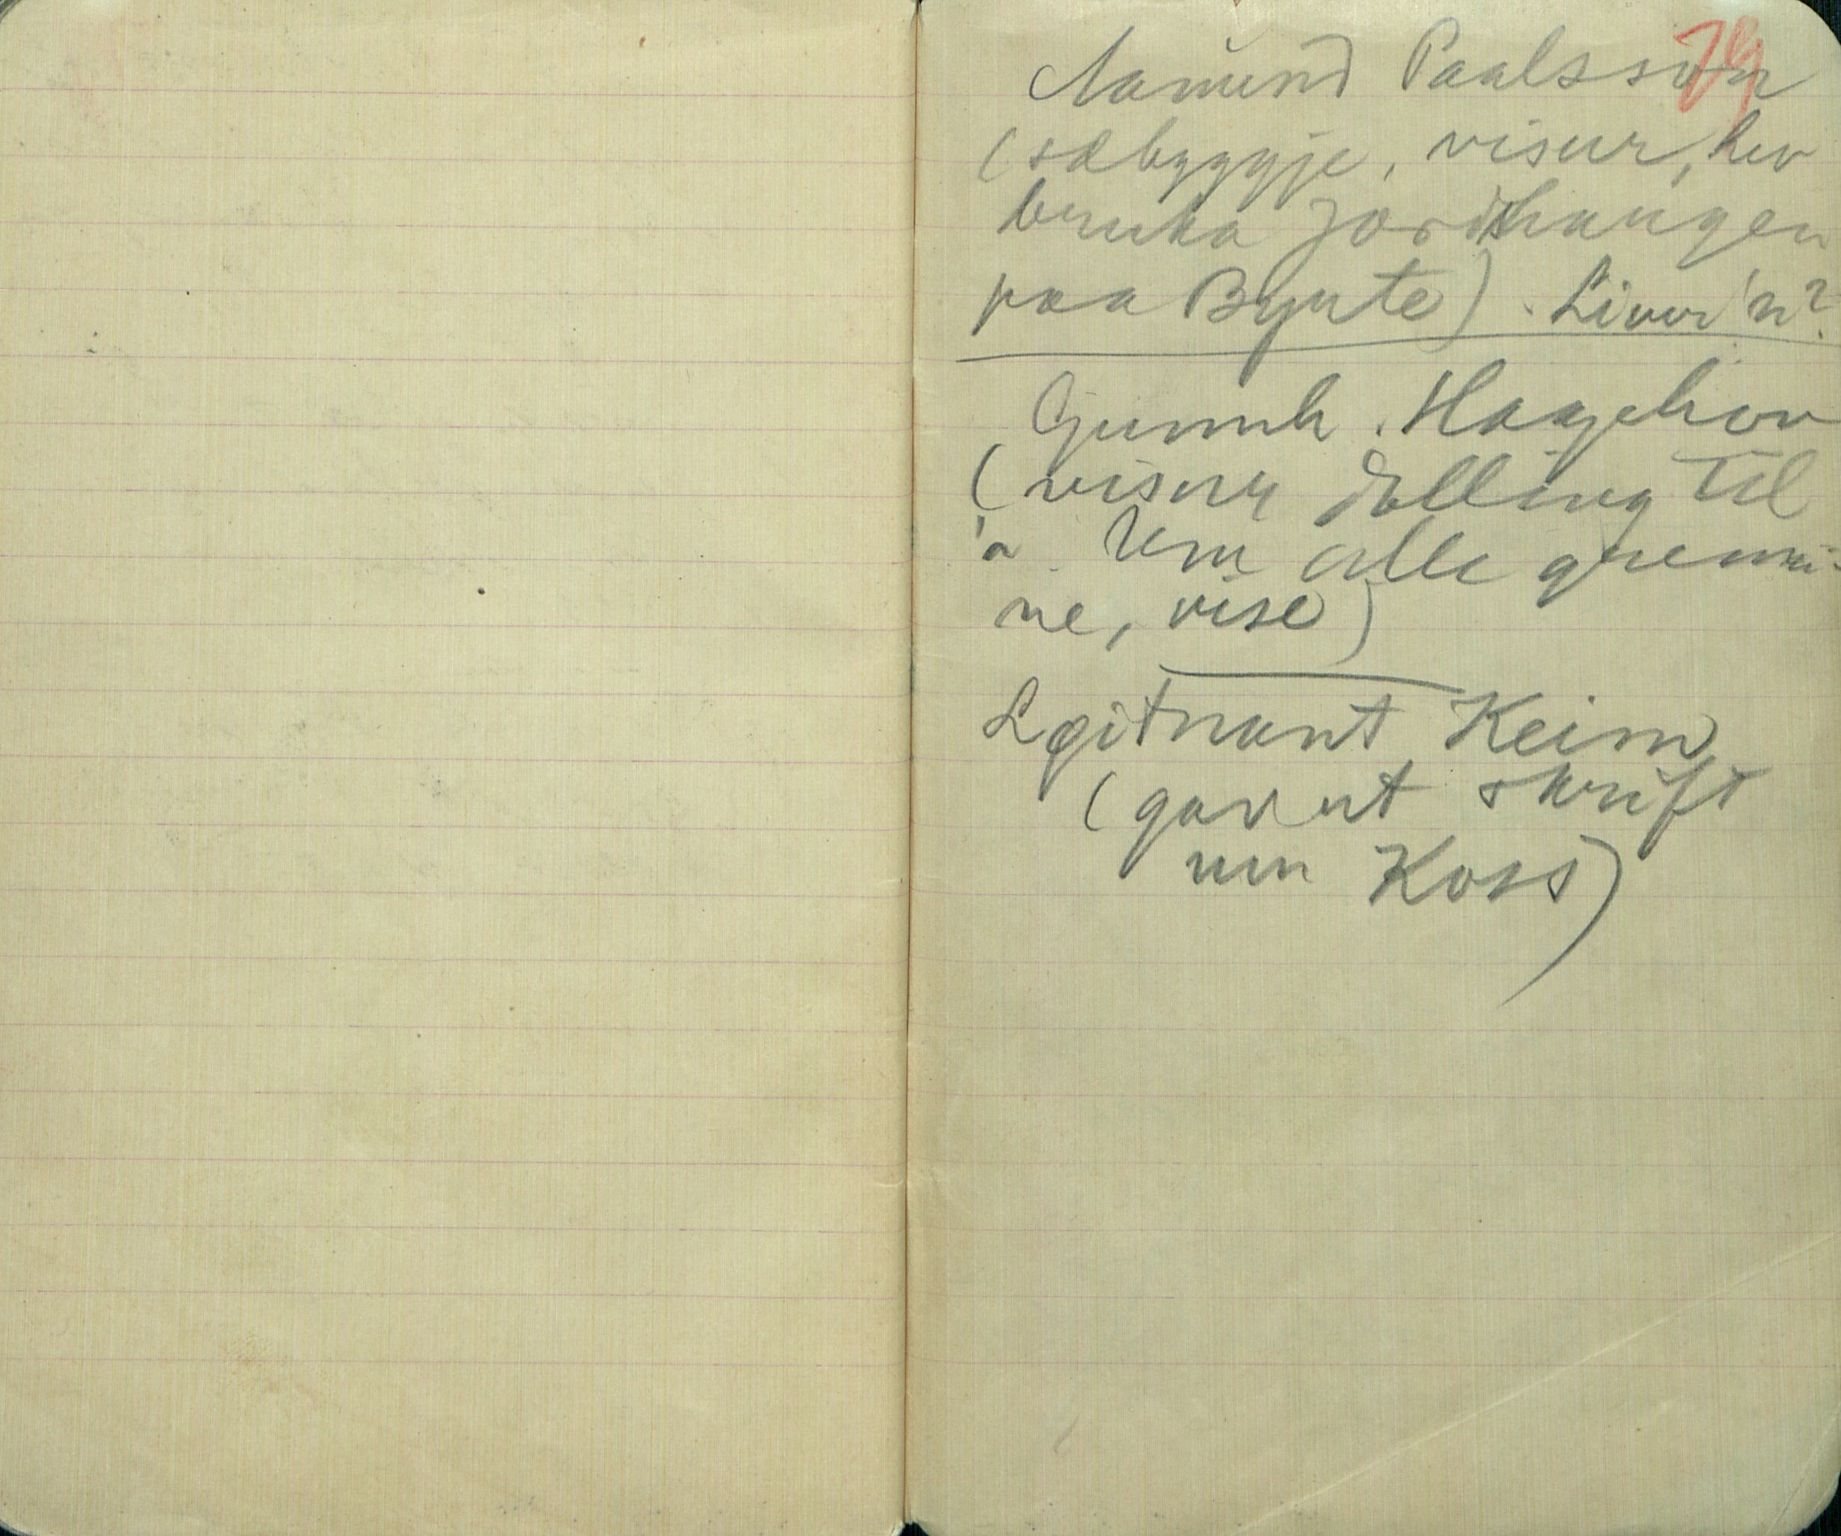 79
Aamund Paalsson
(sæbyggje, visur, hev
bruka Jordhaugen
paa Bynte). Liver 'n?
Gunnh. Hagehov
(visur dotting til
'a Um alle grenni-
ne, vise)
Løitnant Keim
(gav ut skrift
um Koss)